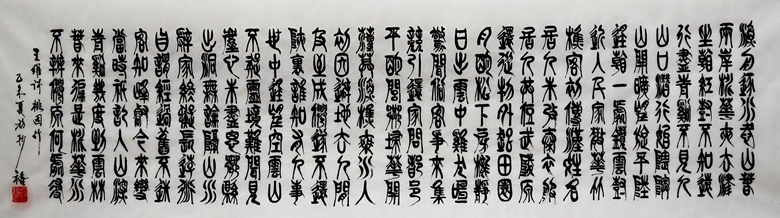 漁舟逐水愛山春
兩岸桃花夾去津
坐看紅樹不知遠
行盡青溪不見人
山口潛行始隈隩
山開曠望旋平陸
遙看一處攢雲樹
近入千家散花竹
樵客初傳漢姓名
居人未改秦衣服
居人共住武陵源
還從物外起田園
月明松下房櫳靜
日出雲中雞犬喧
驚聞俗客爭來集
競引還家問都邑
平明閭巷掃花開
薄暮漁樵乘水入
初因避地去人間
及至成仙遂不還
峽裏誰知有人事
世中遙望空雲山
不疑靈境難聞見
塵心未盡思鄉縣
出洞無論隔山水
辭家終擬長游衍
自謂經過舊不迷
安知峰壑今來變
當時只記入山深
青溪幾度到雲林
春來遍是桃花水
不辨仙源何處尋
王維詩桃源行
乙未夏